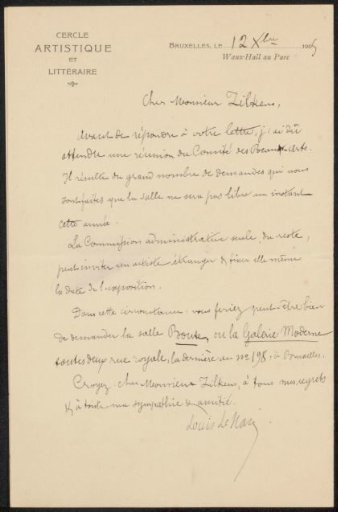 CERCLE
ARTISTIQUE
ET
LITTÉRAIRE
BRUXELLES, LE 12 Xbre 190
Waux-Hall au Parc
Cher Monsieur Zilcken,
Avant de répondre à votre lettre, j'ai dû
attendre une réunion du Comité des Beaux-Arts.
Il résulte du grand nombre de demandes qui nous
que la salle ne sera pas libre un instant
cette année.
La Commission administrative seule, du reste,
peut inviter un artiste étranger & fixer elle même
la date de l'exposition.
Dans cette circonstance, vous feriez peut-être bien
de demander la salle Boute, ou la Galerie Moderne
toutes deux rue royale, la dernière au no 198, à Bruxelles.
Croyez, cher Monsieur Zilcken, à tous mes regrets
& à toute ma sympathie & amitié.
Louis